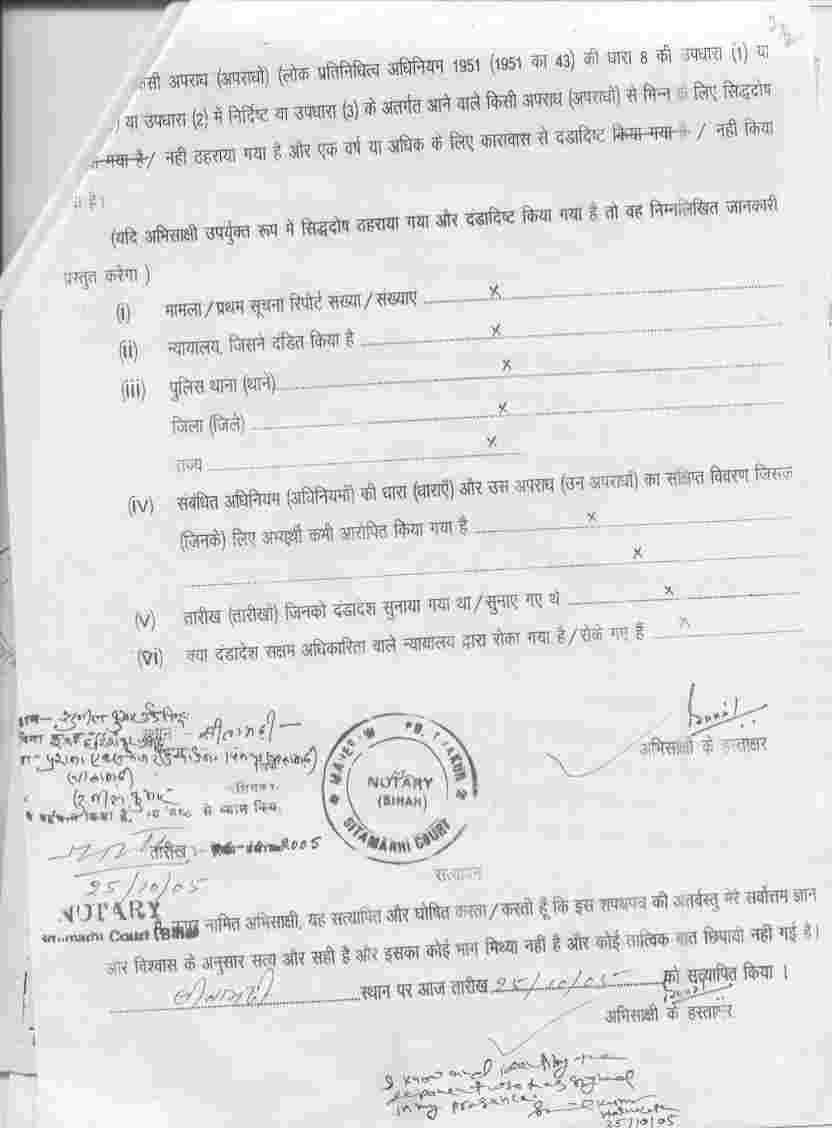 2/2
किसी अपराध (अपराधों) (लोक प्रतिनिधित्व अधिनियम 1951 (1951 का 43) की धारा 8 की उपधारा (1) या
) या उपधारा (2) में निर्दिष्ट या उपधारा (3) के अंतर्गत आने वाले किसी अपराध (अपराधों) से भिन्न के लिए सिद्धदोष
गया है / नहीं ठहराया गया है और एक वर्ष या अधिक के लिए कारावास से दंडादिष्ट किया गया है / नहीं किया
है।
(यदि अभिसाक्षी उपर्युक्त रूप में सिद्धदोष ठहराया गया और दंडादिष्ट किया गया है तो वह निम्नलिखित जानकारी
प्रस्तुत करेगा )
(i) मामला / प्रथम सूचना रिपोर्ट संख्या / संख्याएं x
(ii) न्यायालय, जिसने दंडित किया है x
(iii) पुलिस थाना (थाने) x
जिला (जिले) x
राज्य x
(iv) संबंधित अधिनियम (अधिनियमों) की धारा (धाराएँ) और उस अपराध (उन अपराधों) का संक्षिप्त विवरण जिसके
(जिनके) लिए अभ्यर्थी कभी आरोपित किया गया है x
x
(v) तारीख (तारीखों) जिनको दंडादेश सुनाया गया था / सुनाए गए थे x
(vi) क्या दंडादेश सक्षम अधिकारिता वाले न्यायालय द्वारा रोका गया है / रोके गए हैं x
अभिसाक्षी के हस्ताक्षर
स्थान - सीतामढ़ी
NOTARY
(BIHAR)
SITAMARHI COURT
तारीख 2005
25/10/05
सत्यापन
NOTARY
Sitamarhi Court
नामित अभिसाक्षी, यह सत्यापित और घोषित करता / करती हूँ कि इस शपथपत्र की अंतर्वस्तु मेरे सर्वोत्तम ज्ञान
और विश्वास के अनुसार सत्य और सही है और इसका कोई भाग मिथ्या नहीं है और कोई तात्विक बात छिपायी नहीं गई है।
सीतामढ़ी स्थान पर आज तारीख 25/10/05 को सत्यापित किया ।
अभिसाक्षी के हस्ताक्षर
I know and identify the
deponent who has signed
in my presence.
25/10/05